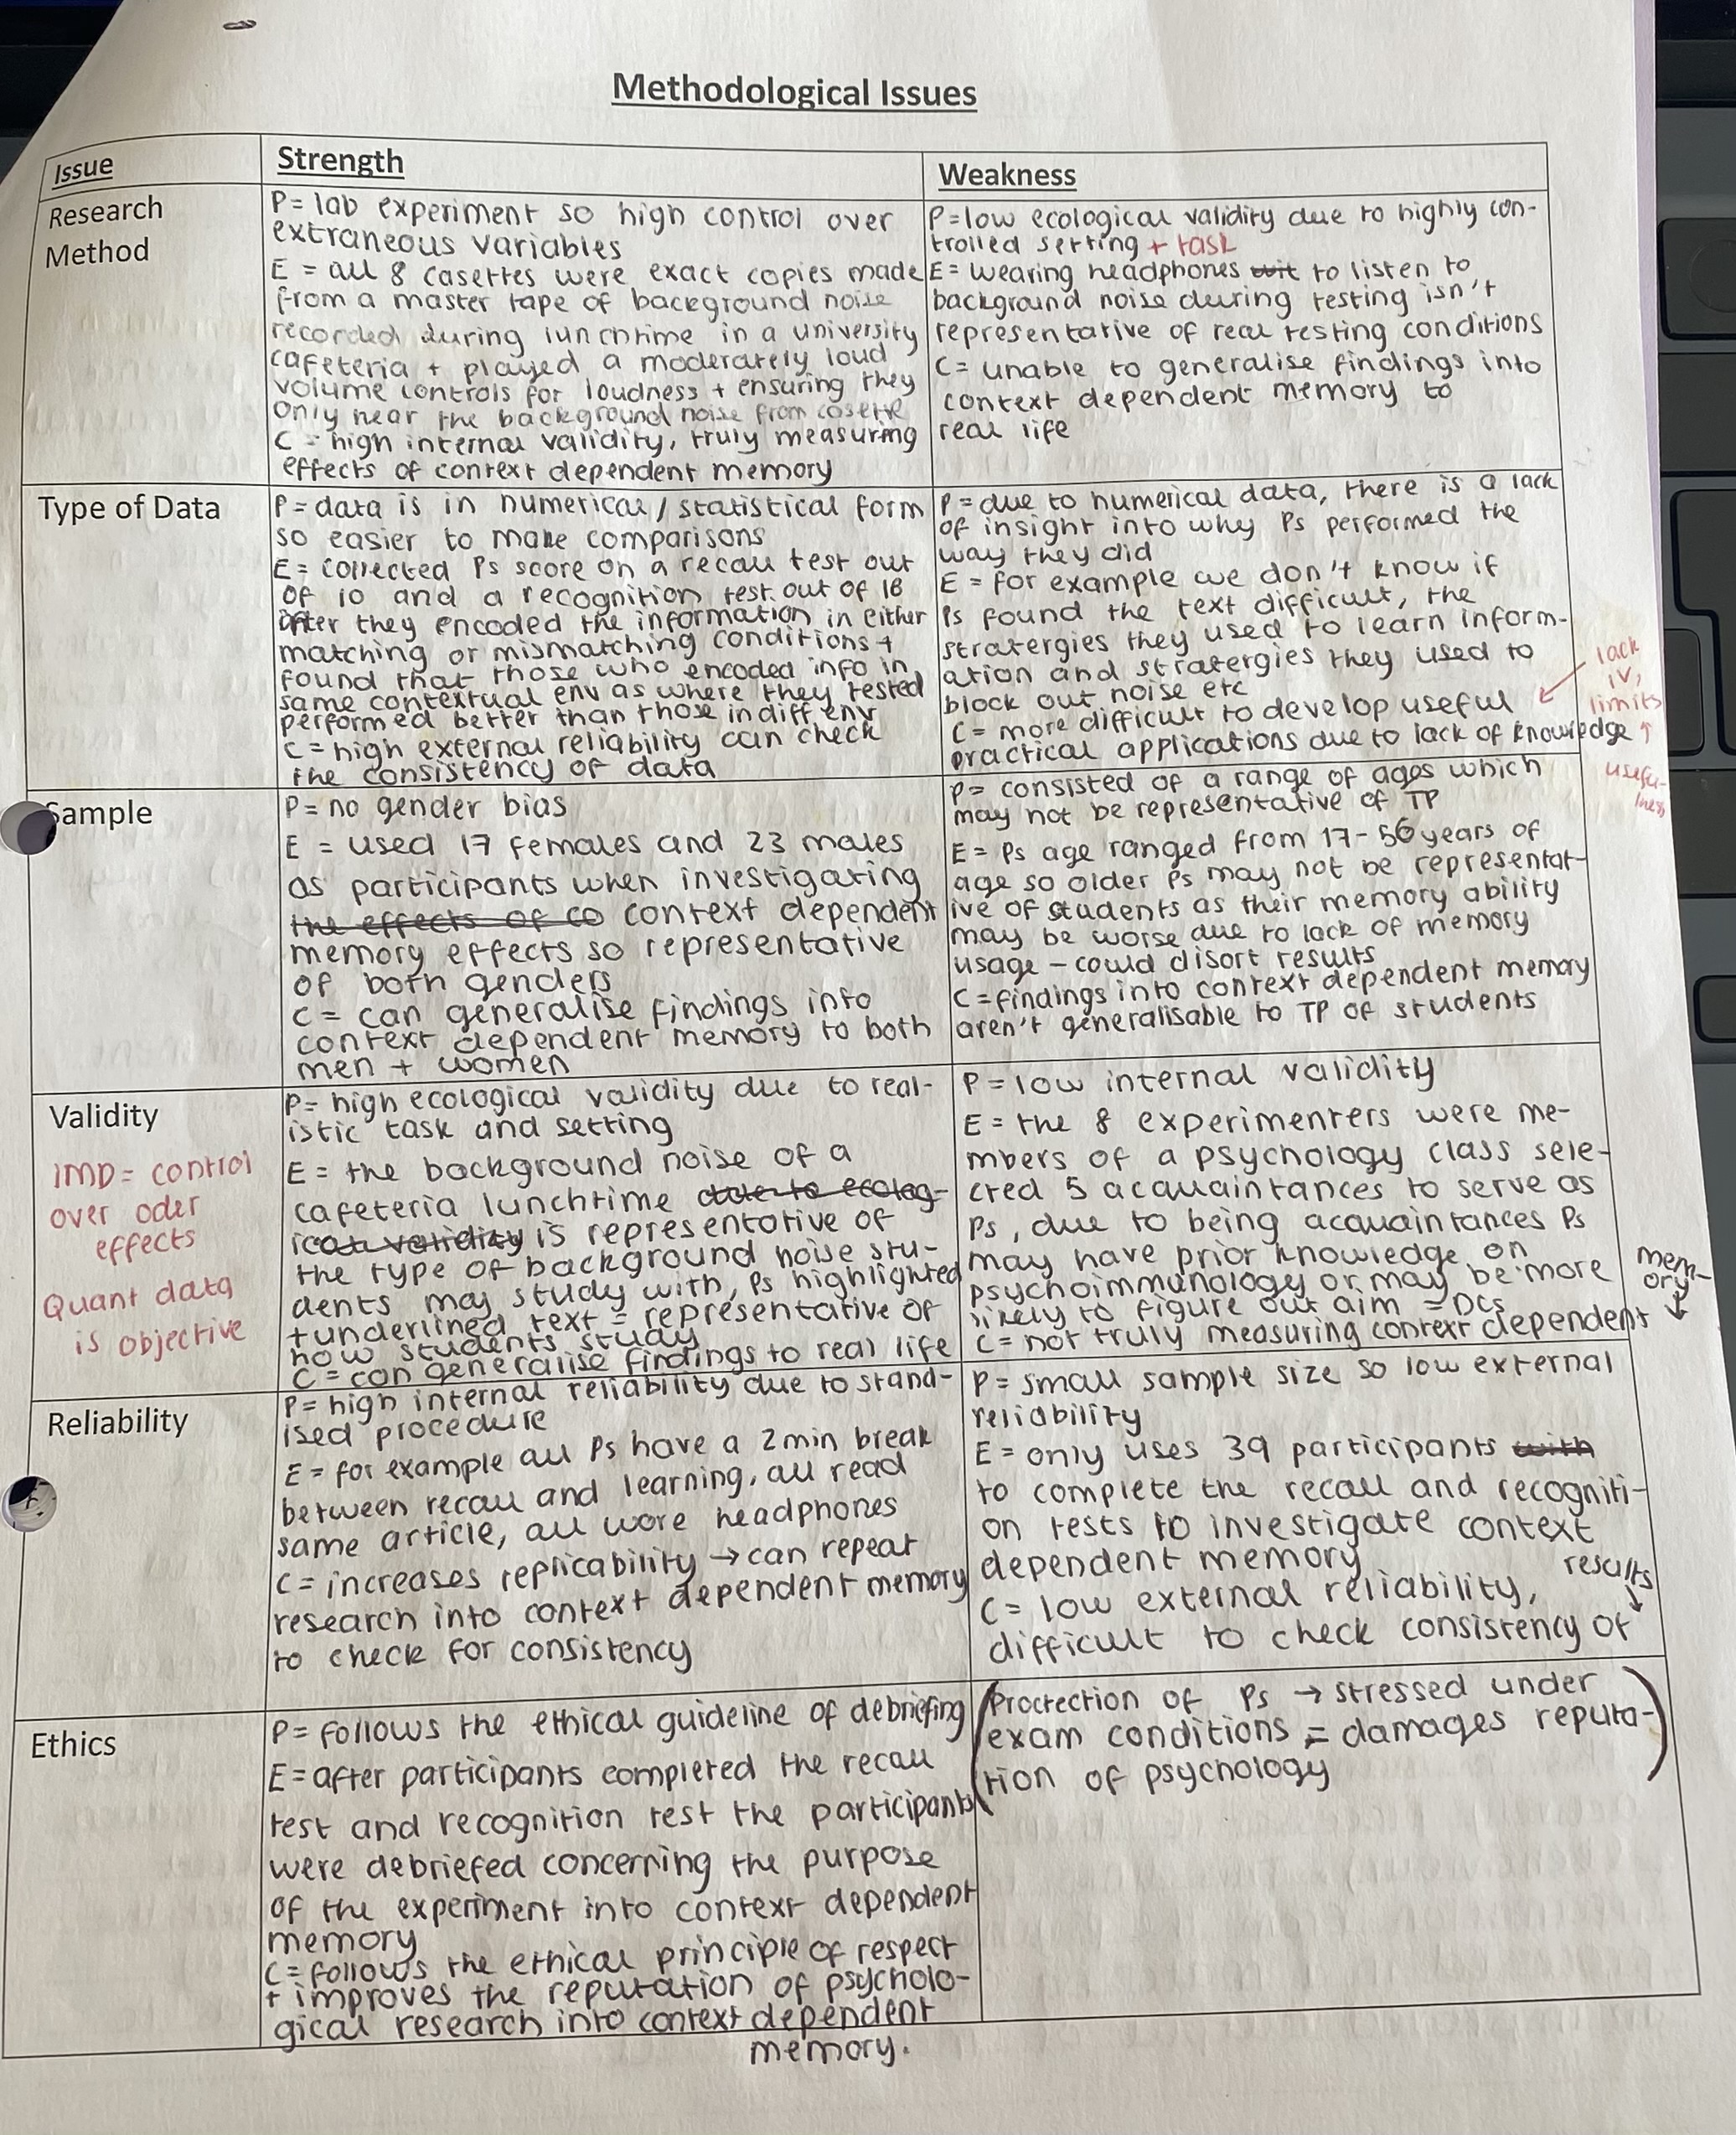 Methodological Issues
Issue
Strength
Weakness
Research
Method
P= lab experiment so high control over
extraneous variables
E = all 8 casettes were exact copies made
from a master tape of background noise
recorded during lunchtime in a university
cafeteria + played a moderately loud
volume controls for loudness + ensuring they
only hear the background noise from cosette
C = high internal validity, truly measuring
effects of context dependent memory
P=low ecological validity due to highly con-
trolled setting + task
E= wearing headphones wit to listen to
background noise during testing isn't
representative of real testing conditions
C= unable to generalise findings into
context dependent memory to
real life
Type of Data
P= data is in numerical / statistical form
so easier to make comparisons
E= collected Ps score on a recall test out
of 10 and a recognition test out of 16
after they encoded the information in either
matching or mismatching conditions +
found that those who encoded info in
same contextual env as where they tested
performed better than those in diff env
C = high external reliability can check
the consistency of data
P= due to numerical data, there is a lack
of insight into why Ps performed the
way they did
E = for example we don't know if
Ps found the text difficult, the
stratergies they used to learn inform-
ation and stratergies they used to
block out noise etc
C= more difficult to develop useful
practical applications due to lack of knowledge
lack
IV,
limits
↑
useful-
lness
Sample
P= no gender bias
E = used 17 females and 23 males
as participants when investigating
the effects of co context dependent
memory effects so representative
of both genders
C = can generalise findings into
context dependent memory to both
men + women
P= consisted of a range of ages which
may not be representative of TP
E= Ps age ranged from 17-56 years of
age so older Ps may not be representat-
ive of students as their memory ability
may be worse due to lack of memory
usage - could disort results
C = findings into context dependent memory
aren't generalisable to TP of students
Validity
IMD= control
over oder
effects
Quant data
is objective
P= high ecological validity due to real-
istic task and setting
E = the background noise of a
cafeteria lunchtime due to ecolog-
ical validity is representative of
the type of background noise stu-
dents may study with, Ps highlighted
+ underlined text = representative of
how students study
C = can generalise findings to real life
P = low internal validity
E = the 8 experimenters were me-
mbers of a psychology class sele-
cted 5 acquaintances to serve as
Ps, due to being acquaintances Ps
may have prior knowledge on
psychoimmunology or may be more
likely to figure out aim = DCs
C= not truly measuring context dependent
mem-
ory
↓
Reliability
P= high internal reliability due to stand-
ised procedure
E = for example all Ps have a 2min break
between recall and learning, all read
same article, all wore headphones
C= increases replicability → can repeat
research into context dependent memory
to check for consistency
P= small sample size so low external
reliability
E = only uses 39 participants with
to complete the recall and recogniti-
on tests to investigate context
dependent memory
C= low external reliability,
difficult to check consistency of
results
↓
Ethics
P= follows the ethical guideline of debriefing
E= after participants completed the recall
test and recognition test the participants
were debriefed concerning the purpose
of the experiment into context dependent
memory
C= follows the ethical principle of respect
+ improves the reputation of psycholo-
gical research into context dependent
memory.
(Proctection of Ps → stressed under
exam conditions = damages reputa-
tion of psychology)